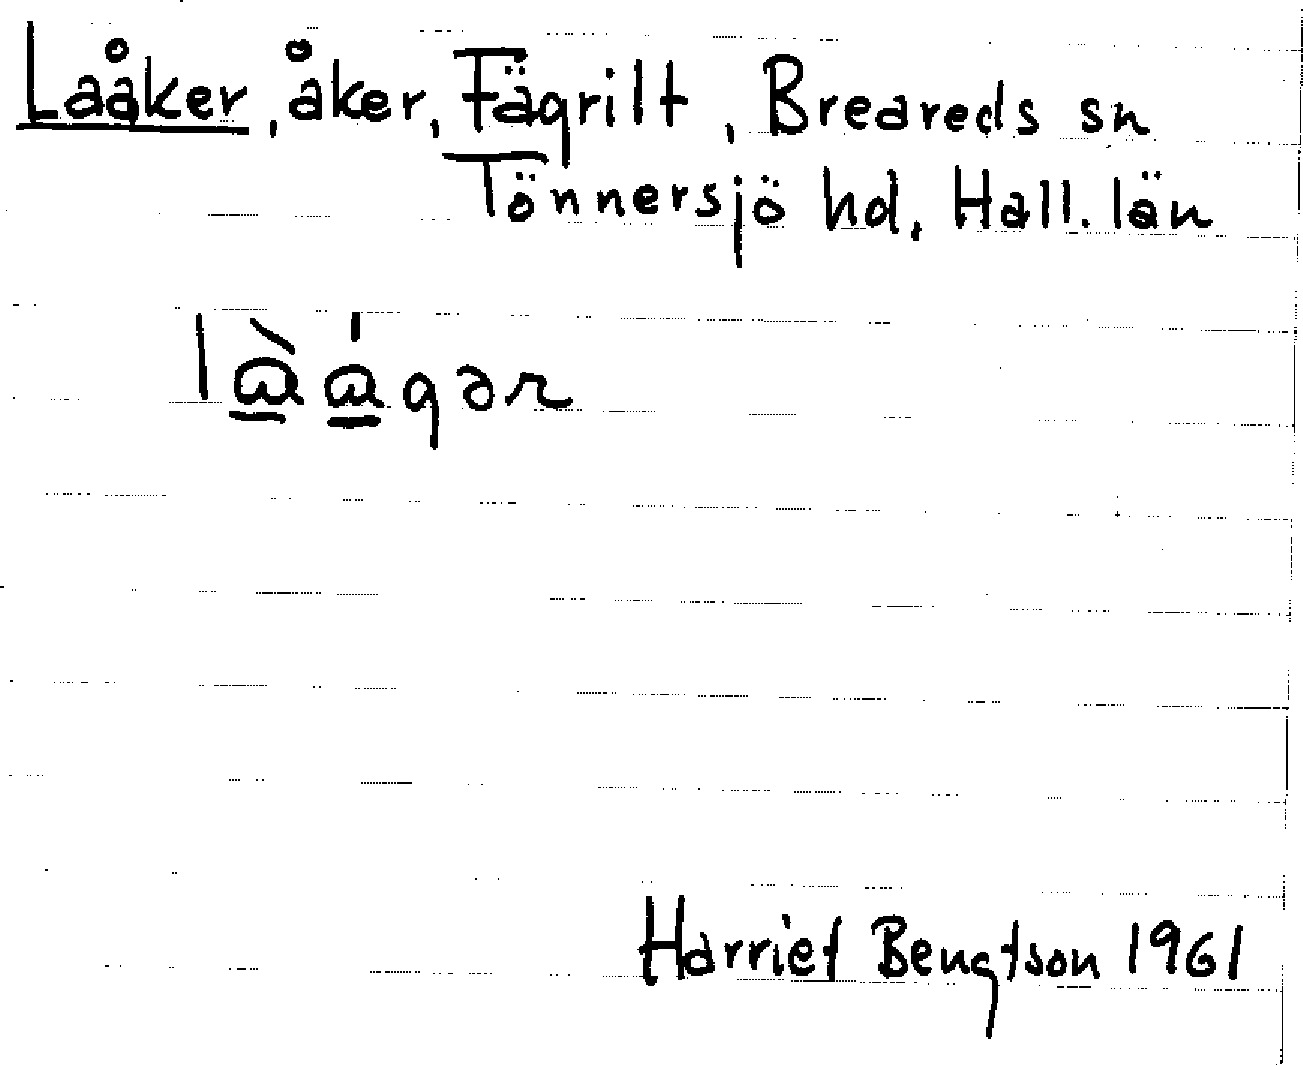 Laåker, åker, Fägrilt, Breareds sn
Tönnersjö hd, Hall. län
Harriet Bengtson 1961